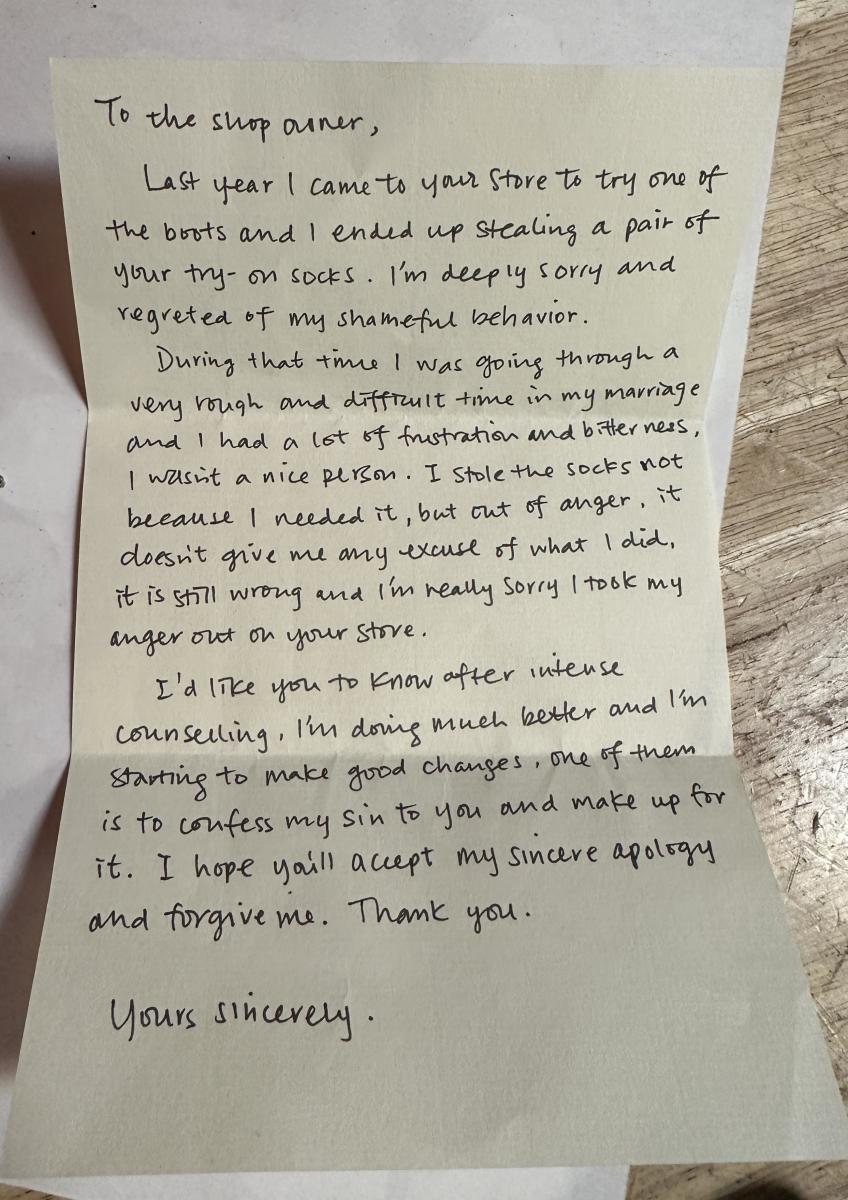 To the shop owner,
Last year I came to your store to try one of
the boots and I ended up stealing a pair of
your try-on socks. I'm deeply sorry and
regreted of my shameful behavior.
During that time I was going through a
very rough and difficult time in my marriage
and I had a lot of frustration and bitterness,
I wasn't a nice person. I stole the socks not
because I needed it, but out of anger, it
doesn't give me any excuse of what I did,
it is still wrong and I'm really sorry I took my
anger out on your store.
I'd like you to know after intense
counselling, I'm doing much better and I'm
starting to make good changes, one of them
is to confess my sin to you and make up for
it. I hope you'll accept my sincere apology
and forgive me. Thank you.
Yours sincerely.